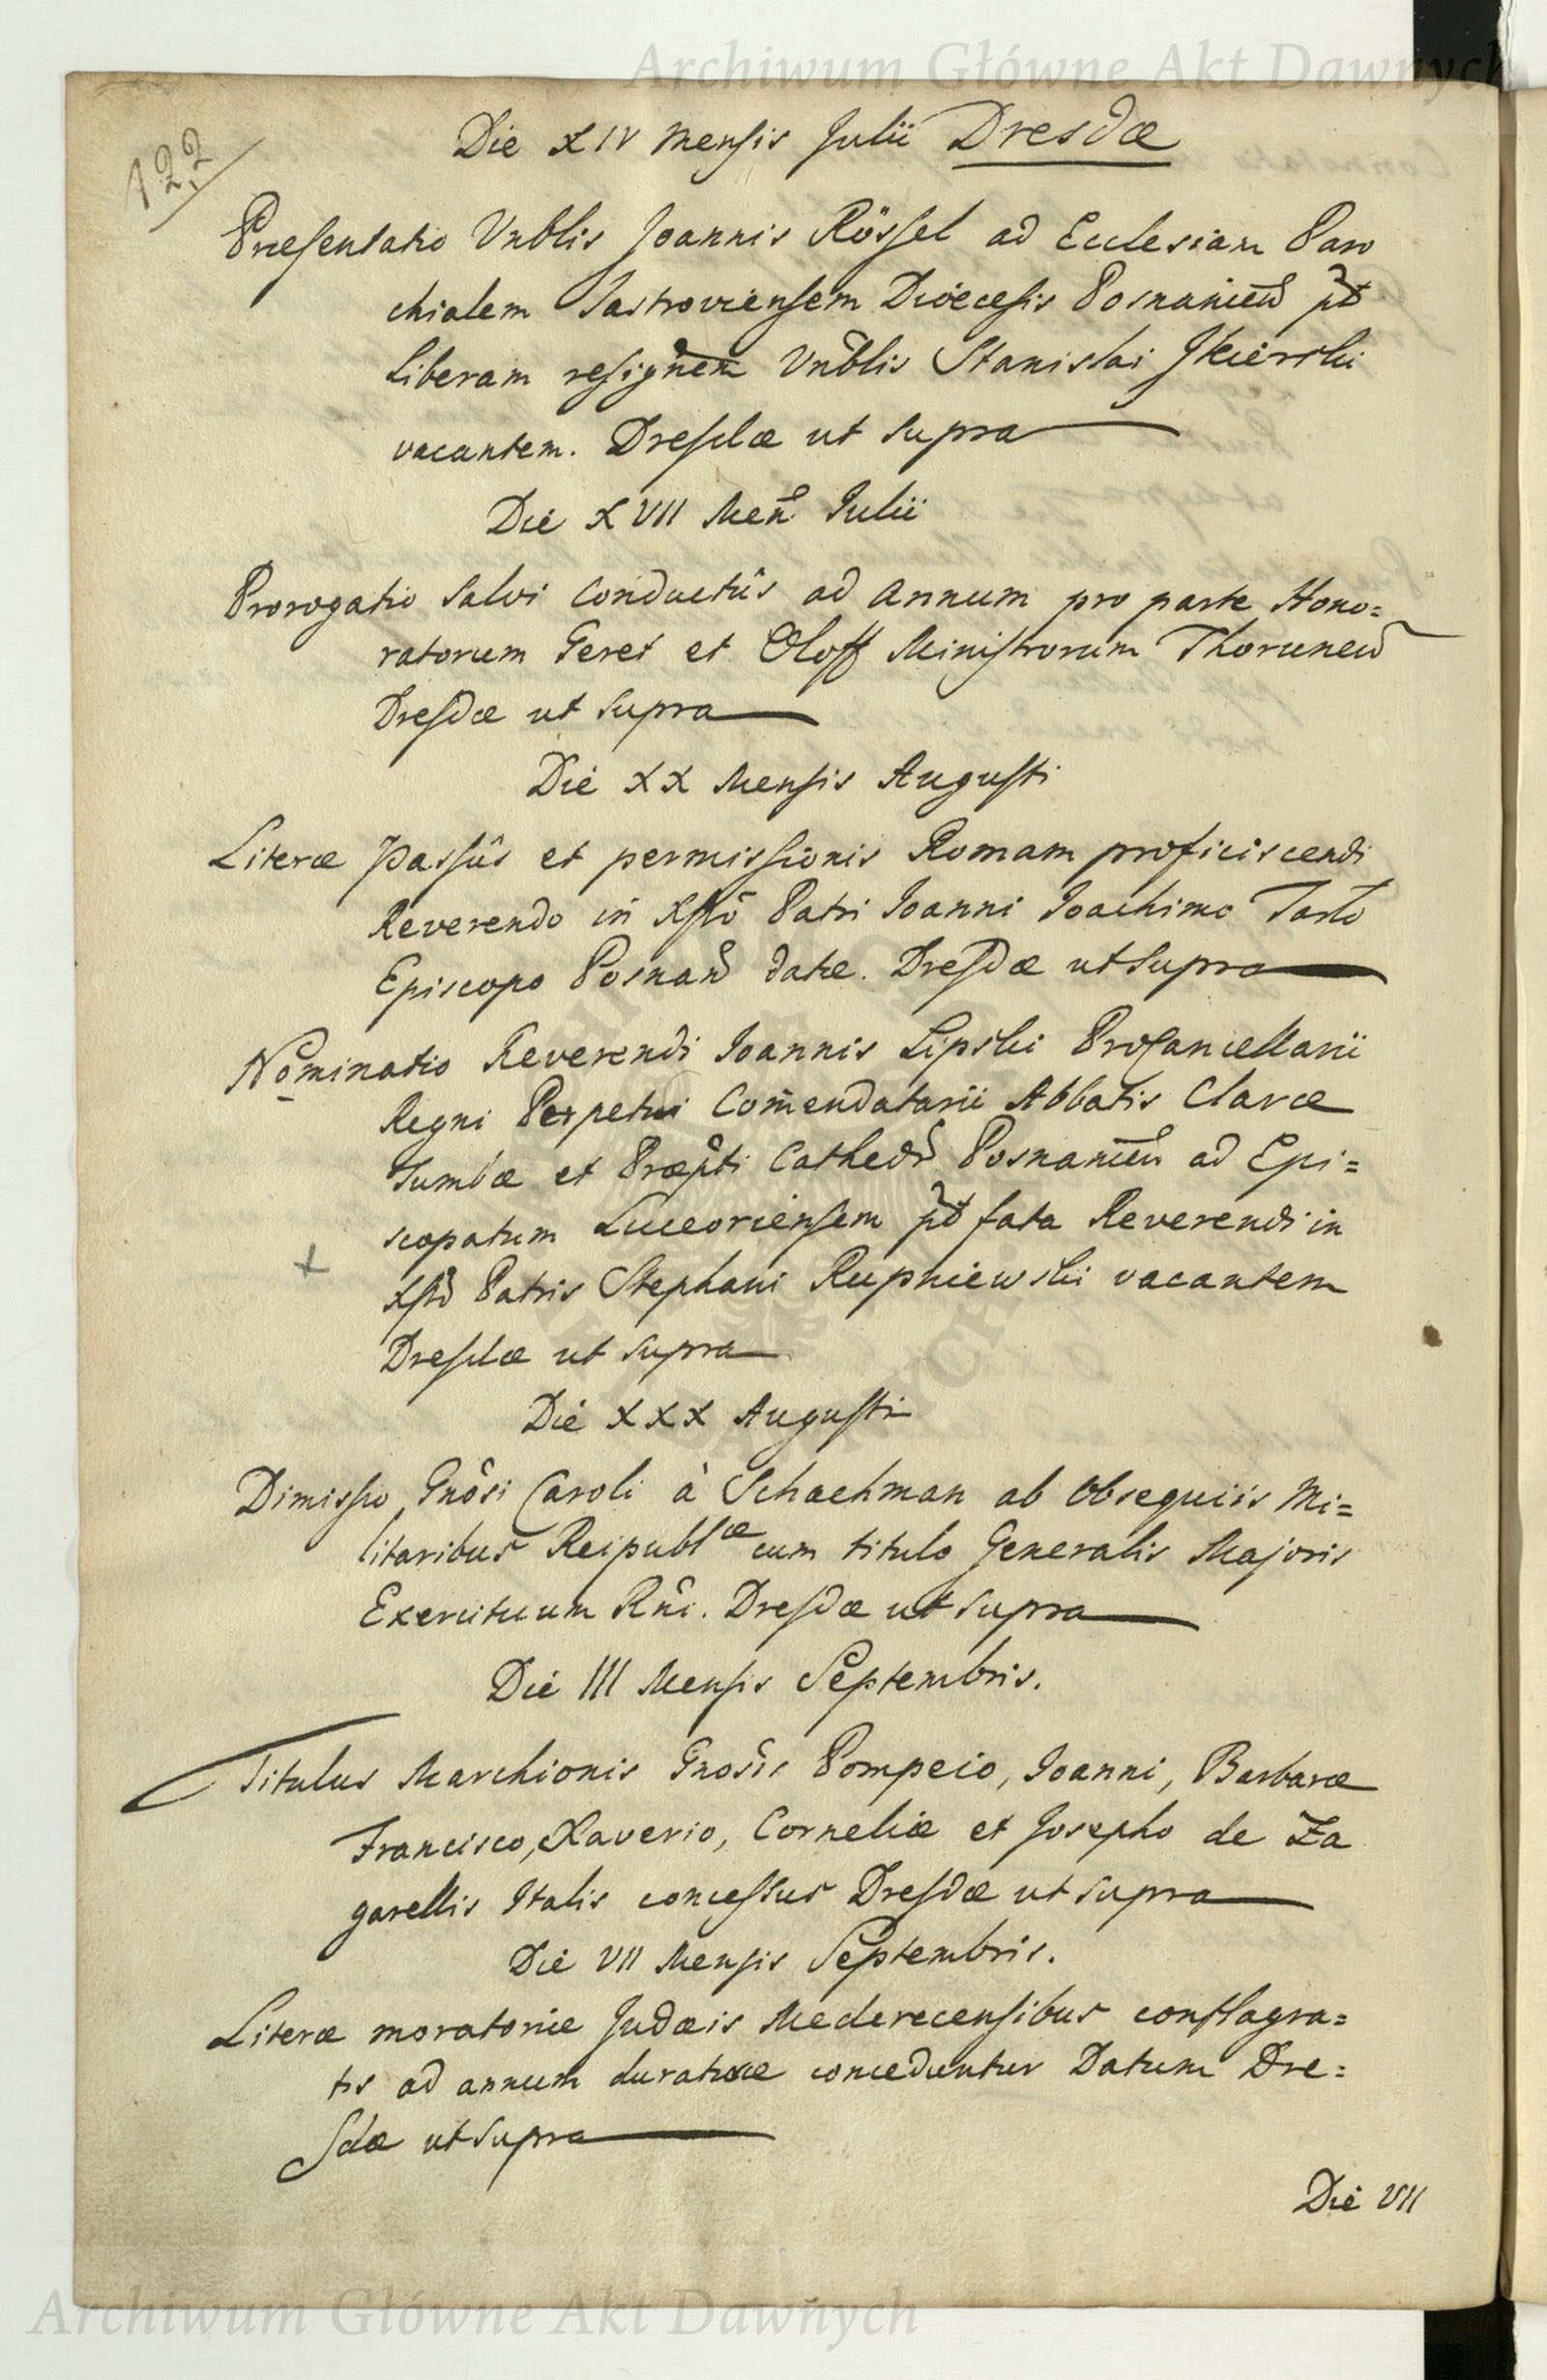 Archiwum Główne Akt Dawnych
122
Die XIV Mensis Julii Dresdæ
Præsentatio Vnblis Joannis Rössel ad Ecclesiam Paro
chialem Jastroviensem Dioecesis Posnanien
liberam resignem Vnblis Stanislai Skierski
vacantem. Dresdæ ut supra
Die XVII Men Julii
Prorogatio Salvi Conductûs ad Annum pro parte Hono=
ratorum Geret et Oloff Ministrorum Thorunen
Dresdæ ut supra
Die XX Mensis Augusti
Literæ Passûs et permissionis Romam proficiscendi
Reverendo in Xpto Patri Joanni Joachimo Tarlo
Episcopo Posnan datæ. Dresdæ ut supra
Nominatio Reverendi Joannis Lipski ProCancellarii
Regni Perpetui Comendatarii Abbatis Claræ
Tumbæ et Præpti Cathedr Posnanien ad Epi=
scopatum Luceoriensem fata Reverendi in
Xpto Patris Stephani Rupniewski vacantem
Dresdæ ut supra
Die XXX Augusti
Dimissio Gnosi Caroli à Schachman ab Obsequiis Mi=
litaribus Reipublcæ cum titulo Generalis Majoris
Exercituum Rni. Dresdæ ut supra
Die III Mensis Septembris.
Titulus Marchionis Gnosis Pompeio, Joanni, Barbaræ
Francisco, Xaverio, Corneliæ et Josepho de Za
garellis Italis concessus Dresdæ ut supra
Die VII Mensis Septembris.
Literæ moratoriæ Judæis Mederecensibus conflagra=
tis ad annum duraturæ conceduntur Datum Dre=
sdæ ut supra
Die VII
Archiwum Główne Akt Dawnych